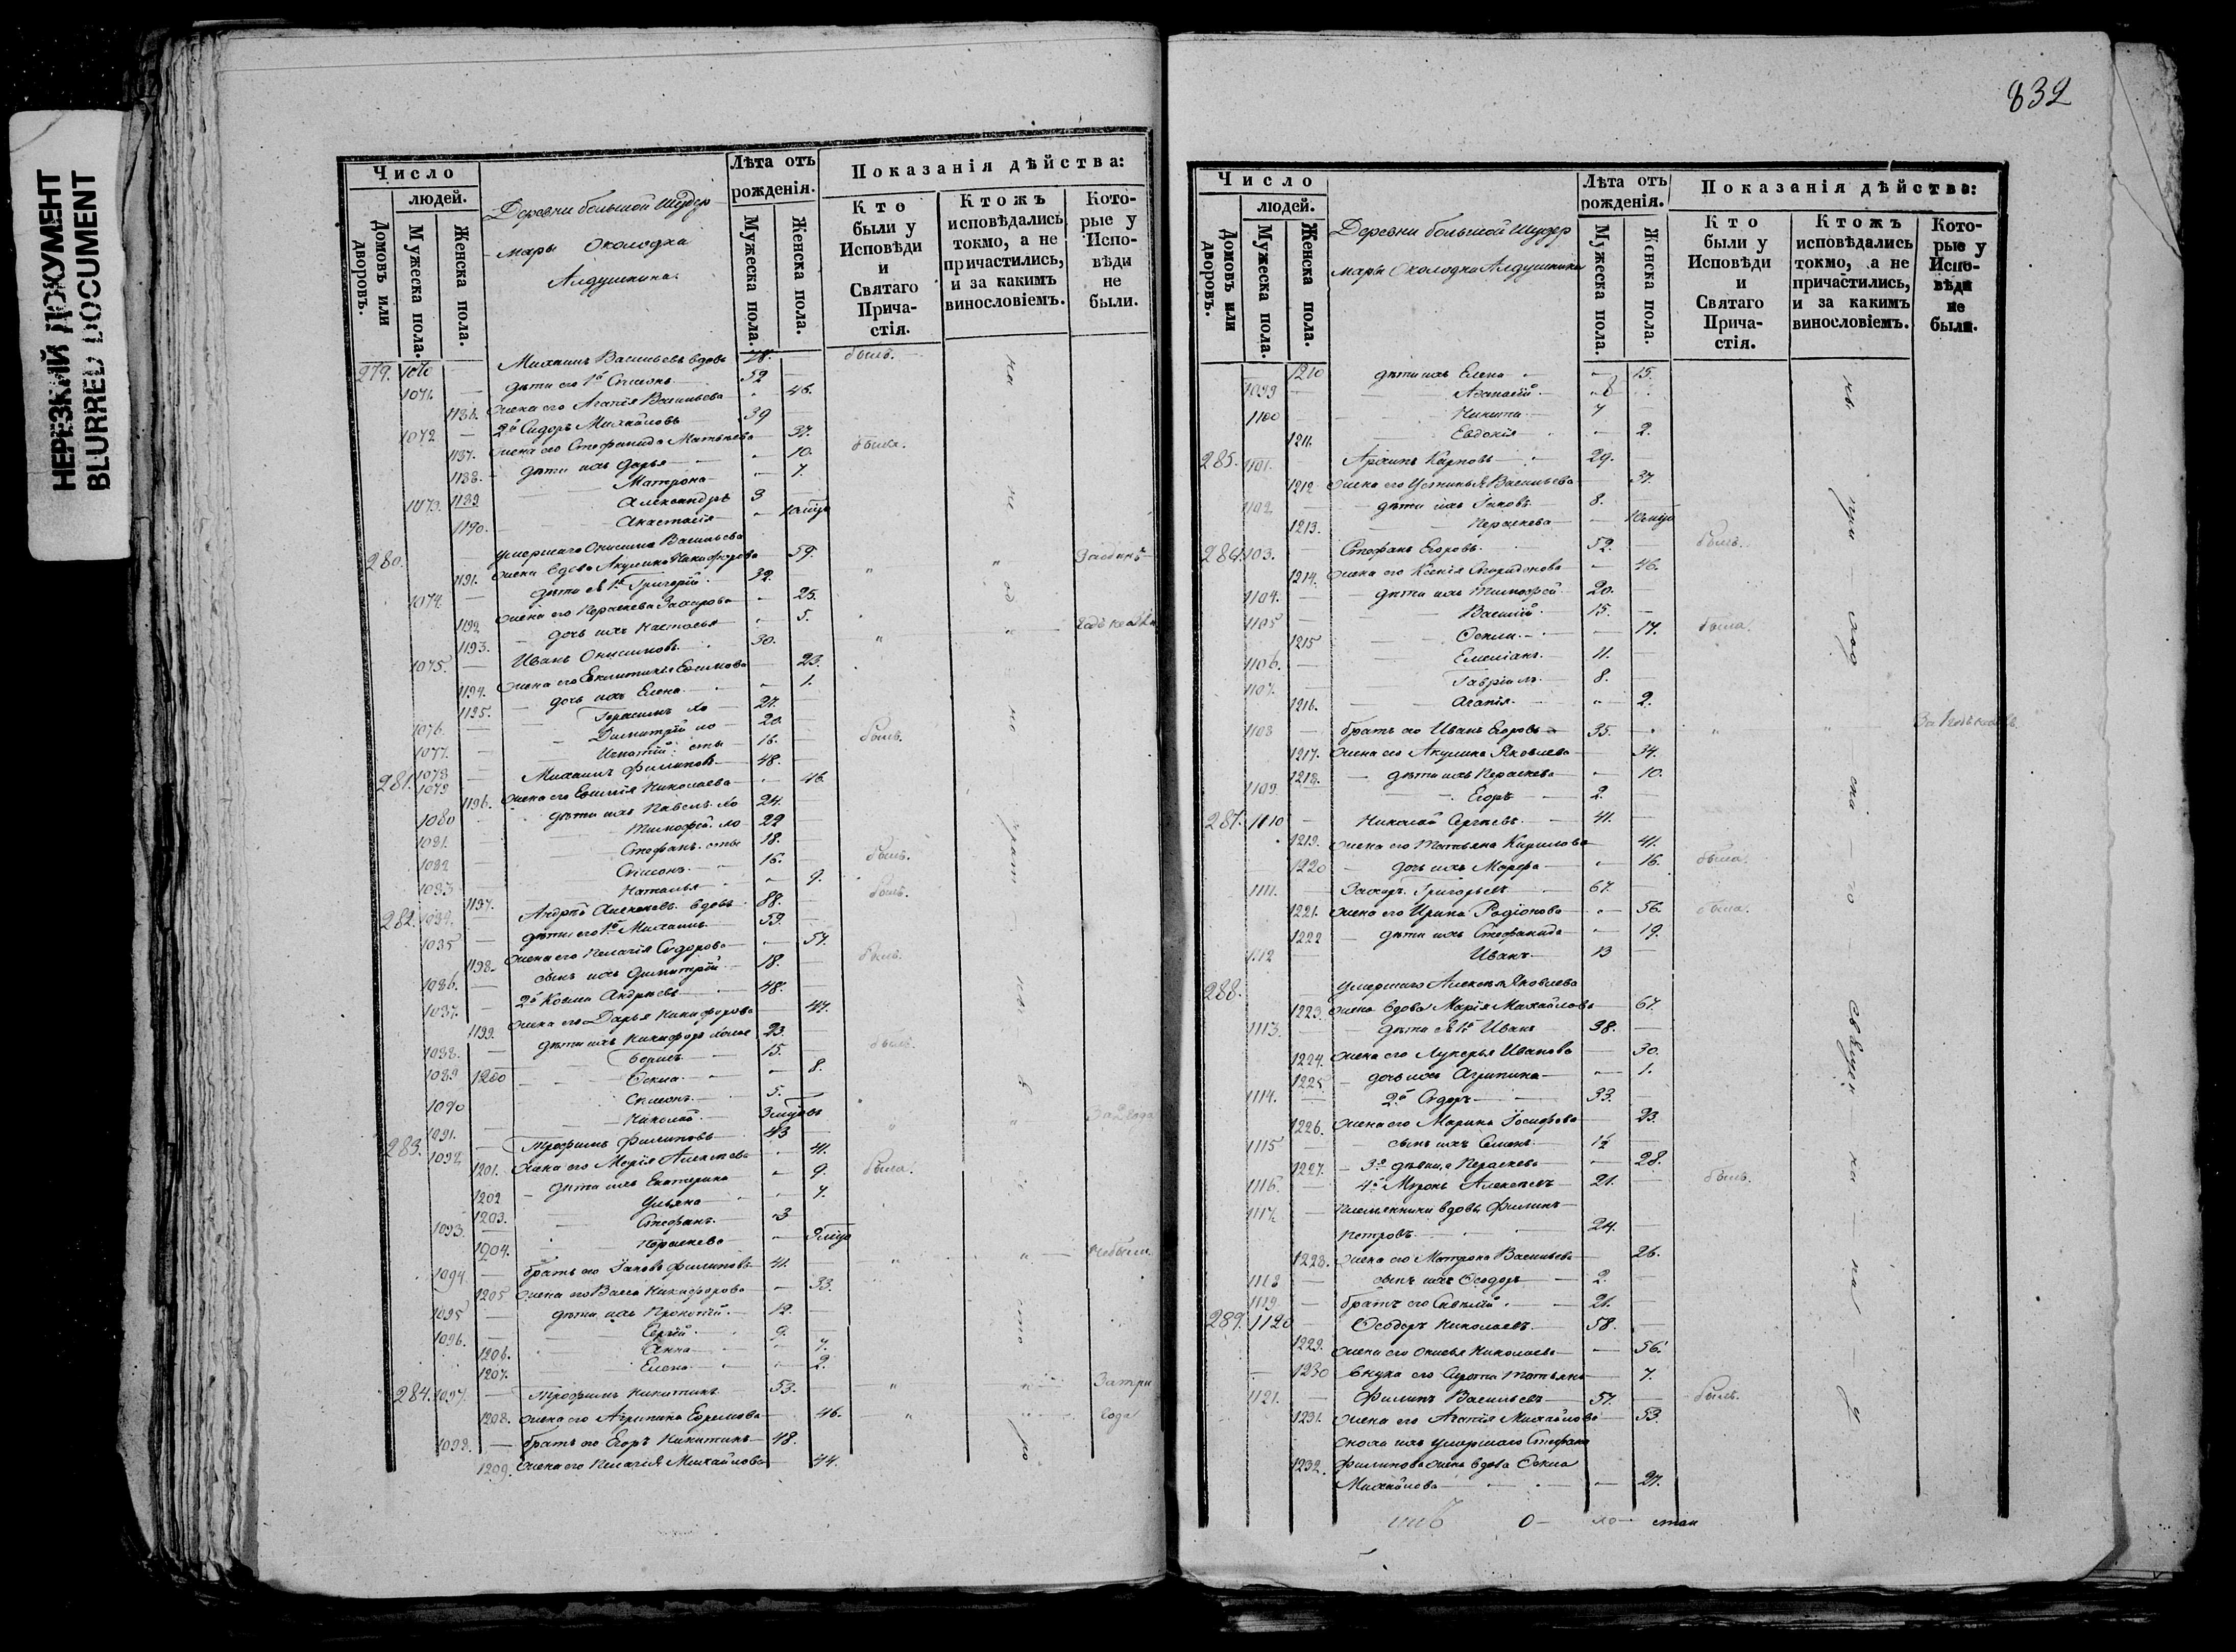 НЕРЕЗКИЙ ДОКУМЕНТ
BLURRED DOCUMENT
Число
людей.
Домовъ или дворовъ.
Мужеска пола.
Женска пола.
Деревни большой Шудер
мары Околодка
Алдушкина
Лѣта отъ рожденія.
Мужеска пола.
Женска пола.
Показанія дѣйства:
Кто были у Исповѣди и Святаго Причастія.
Ктожъ исповѣдались токмо, а не причастились, и за какимъ винословіемъ.
Которые у Исповѣди не были.
279. 1070 Михаилъ Васильевъ вдовъ 78. былъ.
1071. дѣти его 1й Сѵмеонъ 52
1186. жена его Агапія Васильева 46.
1072 2й Сидоръ Михайловъ 39
1187. жена его Стефанида Матвѣева 37. была.
1188. дѣти ихъ Дарья 10.
1189 Матрона 7
1073. Александръ 3
1190. Анастасія 10 мцъ
280. умершаго Онисима Васильева
1191. жена вдова Акулина Никифорова 59.
1074. дѣти ея 1й Григорій 32.
1192 жена его Параскева Захарова 25.
1193. дочь ихъ Настасья 5.
1075. Иванъ Онисимовъ 30.
1194. жена его Ефимова 23.
1195. дочь ихъ Елена 1.
1076. Герасимъ хо 27.
1077. Димитрій хо 20.
1078 Игнатій 16. былъ.
281. 1079 Михаилъ Филиповъ 48.
1196. жена его Евфимія Николаева 46.
1080 дѣти ихъ Павелъ хо 24.
1081. Тимофей хо 22
1082 Стефанъ 18.
1083 Сѵмеонъ 16. былъ.
1197. Наталья 9.
282. 1084. Андрей Алексеевъ вдовъ 88. былъ.
1085 дѣти его 1й Михаилъ 59.
1198. жена его Пелагія Сидорова 57.
1086. сынъ ихъ Димитрій 18. былъ.
1087. 2й Козма Андреевъ 48.
1199. жена его Дарья Никифорова 47.
1088. дѣти ихъ Никифоръ 23.
1089 Борисъ 15. былъ.
1200 Ѳекла 8.
1090 Сѵмеонъ 5.
1091. Николай 3 мцовъ
283. 1092 Трофимъ Филиповъ 43 За 2 года
1201. жена его Марія Алексеева 41.
1202 дѣти ихъ Екатерина 9. была.
1203. Ульяна 7.
1093. Стефанъ 3
1204. Параскева 9 мцъ
1094. братъ его Іаковъ Филиповъ 41. небыли
1205 жена его Васса Никифорова 33.
1095 дѣти ихъ Прокопій 12.
1096. Сергій 9.
1206. Анна 7.
1207. Елена 2.
284. 1097. Трофимъ Никитинъ 53. За три
1208. жена его Агрипина Ефремова 46. года
1098. братъ его Егоръ Никитинъ 48.
1209. жена его Пелагія Михайлова 44.
832
Число
людей.
Домовъ или дворовъ.
Мужеска пола.
Женска пола.
Деревни большой Шудер
мары Околодка Алдушкина
Лѣта отъ рожденія.
Мужеска пола.
Женска пола.
Показанія дѣйства:
Кто были у Исповѣди и Святаго Причастія.
Ктожъ исповѣдались токмо, а не причастились, и за какимъ винословіемъ.
Которые у Исповѣди не были.
1210 дѣти ихъ Елена 15.
1099 Аѳанасій 8
1100 Никита 7
1211. Евдокія 2.
285. 1101. Архипъ Карповъ 29.
1212 жена его Устинья Васильева 37.
1102 дѣти ихъ Іаковъ 8.
1213. Параскева 10 мцъ
286. 1103. Стефанъ Егоровъ 52. былъ.
1214. жена его Ксенія Спиридонова 46.
1104. дѣти ихъ Тимофей 20.
1105 Василій 15.
1215 Ѳекла 17. была.
1106. Емеліанъ 11.
1107. Гавріилъ 8.
1216. Агапія 2.
1108 братъ его Иванъ Егоровъ 35.
1217. жена его Акулина Яковлева 34.
1218. дѣти ихъ Параскева 10.
1109 Егоръ 2.
287. 1110 Николай Сергеевъ 41.
1219. жена его Татьяна Кирилова 41.
1220 дочь ихъ Марфа 16. была.
1111. Захаръ Григорьевъ 67.
1221. жена его Ирина Родіонова 56. была.
1222 дѣти ихъ Стефанида 19.
1112 Иванъ 13
288. умершаго Алексея Яковлева
1223. жена вдова Марія Михайлова 67.
1113. дѣти ея 1й Иванъ 38.
1224. жена его Лукерья Иванова 30.
1225 дочь ихъ Агрипина 1.
1114. 2й Сидоръ 33.
1226. жена его Марина Іосифова 23.
1115 сынъ ихъ Семенъ 1/2
1227. 3я дѣвица Параскева 28.
1116. 4й Миронъ Алексеевъ 21. былъ.
1117. Племянники вдовы Филипъ
Петровъ 24.
1228. жена его Матрона Васильева 26.
1118 сынъ ихъ Ѳеодоръ 2.
1119 братъ его Савелій 21.
289. 1120 Ѳеодоръ Николаевъ 58.
1229. жена его Николаева 56.
1230 внука его сирота Татьяна 7.
1121. Филипъ Васильевъ 57. былъ.
1231. жена его Агапія Михайлова 53.
сноха ихъ умершаго Стефана
1232. Филипова жена вдова Ѳекла
Михайлова 27.